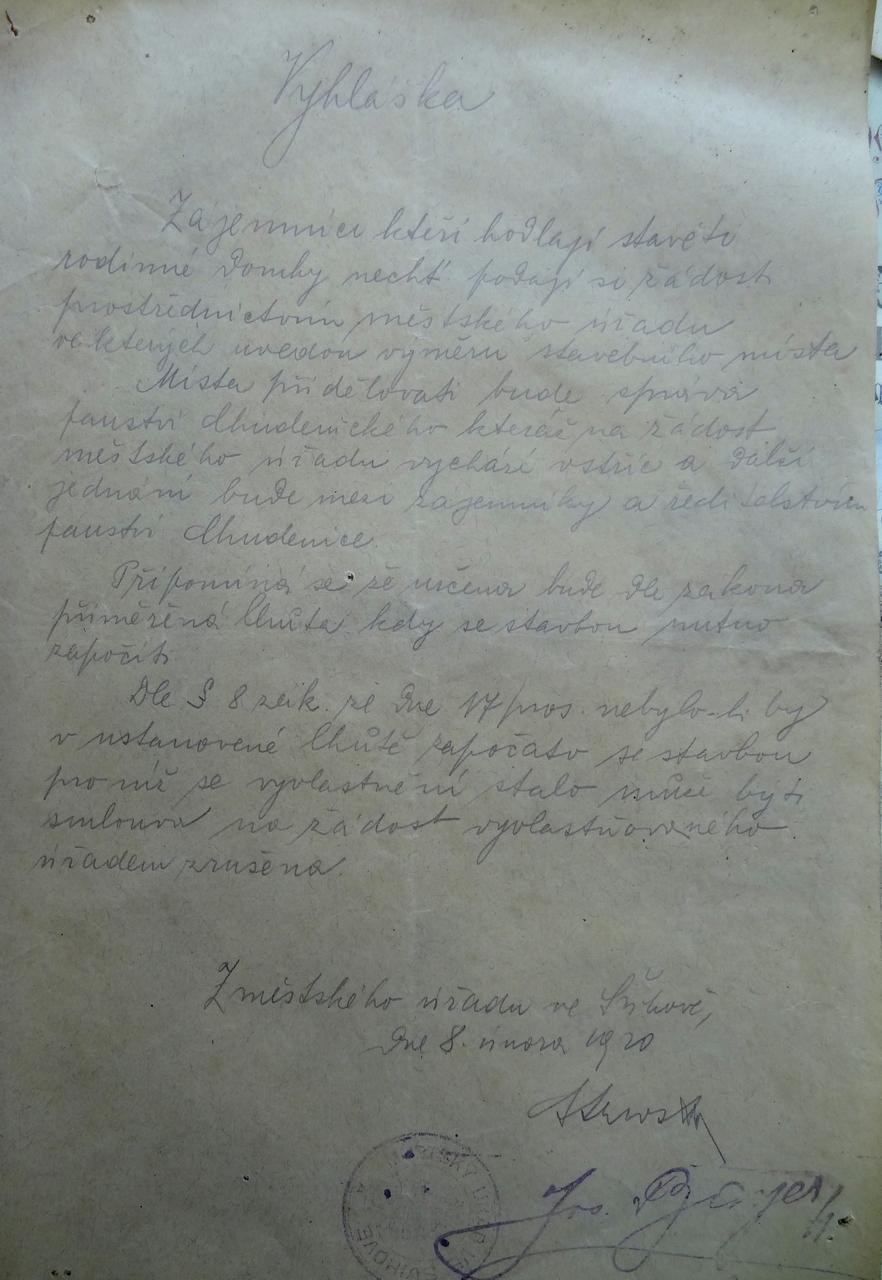 Vyhláška
Zájemnici kteří hodlají stavěti
rodinné domky nechť podají si žádost
prostřednictvím městského úřadu
ve kterých uvedou výměru stavebního místa
Místa přidělovati bude správa
panství Chudenického kteráž na žádost
městského úřadu vychází vstříc a další
jednání bude mezi zájemníky a ředitelstvím
panství Chudenice.
Připomíná se že určena bude dle zákona
přiměřená lhůta kdy se stavbou nutno
započíti.
Dle § 8 zák. ze dne 17 pros. nebylo-li by
v ustanovené lhůtě započato se stavbou
pro niž se vyvlastnění stalo může býti
smlouva na žádost vyvlastňovaného
úřadem zrušena.
Z městského úřadu ve Švihově,
dne 8. února 1920
Jos.
MĚSTSKÝ ÚŘAD VE ŠVIHOVĚ